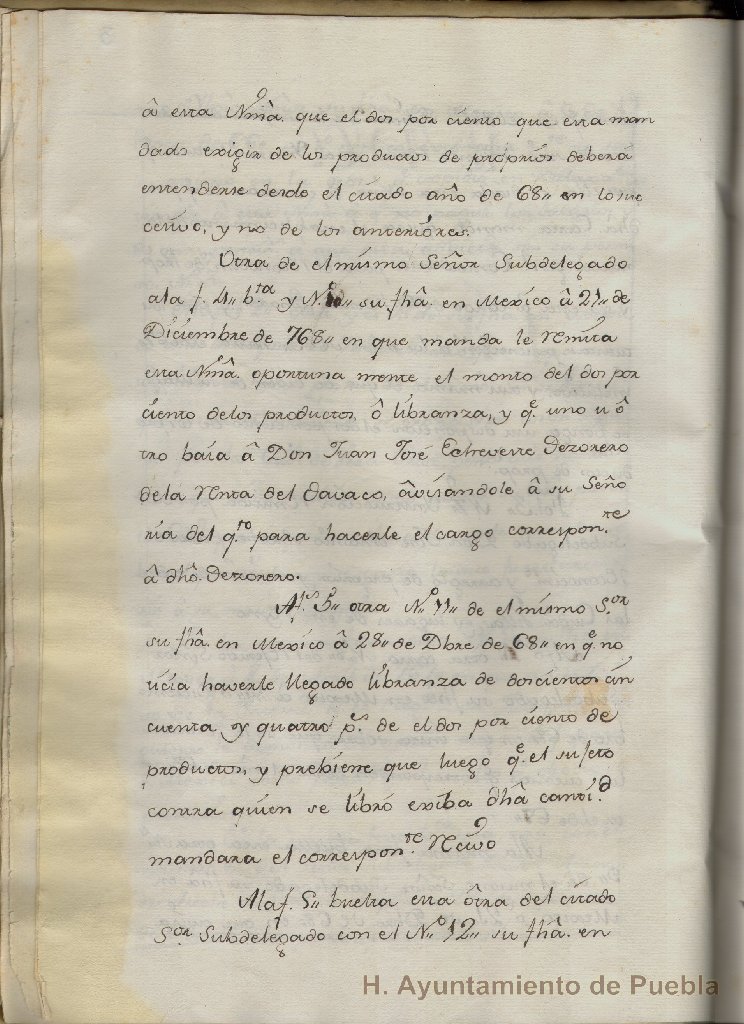 â esta Nma. que el dos por ciento que esta man
dado exigir de los productos de proprios deberá
entenderse desde el citado año de 68,, en lo suc
cesivo, y no de los anteriores.
Otra de el mismo Señor Subdelegado
ala f. 4,, b.ta y N.o 10,, su fhâ. en Mexico â 21,, de
Diciembre de 768,, en que manda le Rmita
esta Nma. oportuna mente el monto del dos por
ciento delos productos, ô libranza, y q.e uno u ô
tro baia â Don Juan José Echeveste Dezorero
dela Rnta del Davaco, âvisandole â su Seño
ria del q.to para hacerle el cargo correspon.te
â dhô. Dezorero.
A f.s 5,, otra N.o 11,, de el mismo S.or
su fhâ. en Mexico â 28,, de Dbre de 68,, en q.e no
ticia haverle llegado libranza de doscientos cin
cuenta y quatro p.s de el dos por ciento de
productos, y prebiene que luego q.e el sujeto
contra quien se libró exiba dhâ canti.d
mandara el correspon.te Rcivo
Ala f. 5,, buelta esta ôtra del citado
S.or Subdelegado con el N.o 12,, su fhâ. en
H. Ayuntamiento de Puebla